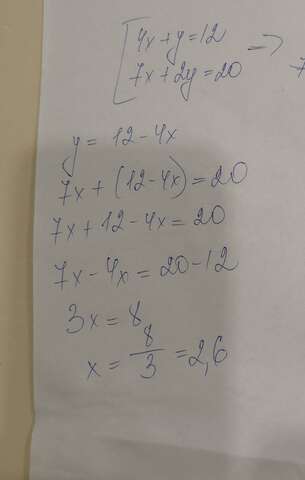 4x+y=12 =>
7x+2y=20 7
y = 12-4x
7x+(12-4x)=20
7x+12-4x=20
7x-4x=20-12
3x=8
x=8/3=2,6